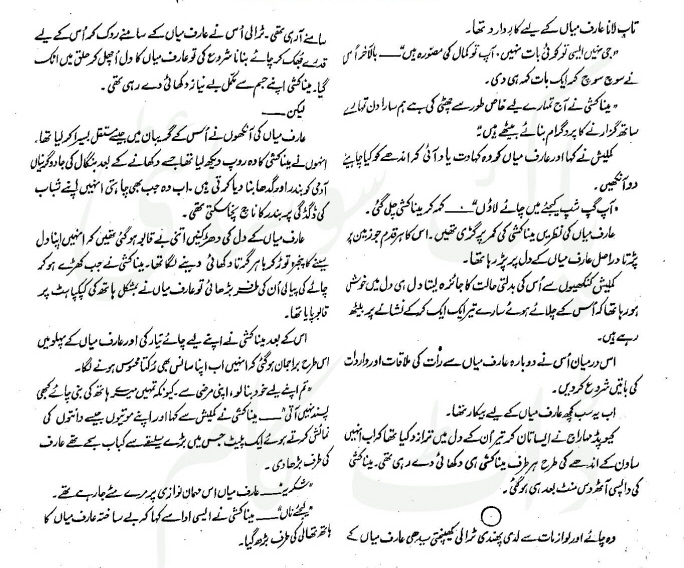 تاپ لانا عارف میاں کے لیے کارِ دارد تھا۔
"جی نہیں ایسی تو کوئی بات نہیں، آپ تو کمال کی مصورہ ہیں" —— بالآخر اُس
نے سوچ سوچ کر ایک بات کہہ ہی دی۔
"میناکشی نے آج تمہارے لیے خاص طور سے چھٹی کی ہے ہم سارا دن تمہارے
ساتھ گزارنے کا پروگرام بنائے بیٹھے ہیں"
کملیش نے کہا اور عارف میاں کو وہ کہاوت یاد آئی کہ اندھے کو کیا چاہیئے
دو آنکھیں۔
"آپ گپ شپ کیجئے میں چائے لاؤں" —— کہہ کر میناکشی چل گئی۔
عارف میاں کی نظریں میناکشی کی کمر پر گڑی تھیں۔ اس کا ہر قدم جو زمین پر
پڑتا دراصل عارف میاں کے دل پر پڑ رہا تھا۔
کملیش کنکھیوں سے اُس کی بدلتی حالت کا جائزہ لیتا دل ہی دل میں خوش
ہو رہا تھا کہ اُس کے چلائے ہوئے سارے تیر ایک ایک کر کے نشانے پر بیٹھ
رہے ہیں۔
اس درمیان اُس نے دوبارہ عارف میاں سے رات کی ملاقات اور واردات
کی باتیں شروع کر دیں۔
اب یہ سب کچھ عارف میاں کے لیے بیکار تھا۔
کیوپڈ مہاراج نے ایسا تان کر تیر اُن کے دل میں ترازو کیا تھا کہ اب انہیں
ساون کے اندھے کی طرح ہر طرف میناکشی ہی دکھائی دے رہی تھی۔ میناکشی
کی واپسی آٹھ دس منٹ بعد ہی ہو گئی۔
وہ چائے اور لوازمات سے لدی پھندی ٹرالی کھینچتی سیدھی عارف میاں کے
سامنے آ رہی تھی۔ ٹرالی اُس نے عارف میاں کے سامنے روک کر اُس کے لیے
قدرے جھک کر چائے بنانا شروع کی تو عارف میاں کا دل اُچھل کر حلق میں اٹک
گیا۔ میناکشی اپنے جسم سے مکمل بے نیاز دکھائی دے رہی تھی۔
لیکن ——
عارف میاں کی آنکھوں نے اُس کے گریبان میں جیسے مستقل بسیرا کر لیا تھا۔
انہوں نے میناکشی کا وہ روپ دیکھ لیا تھا جسے دکھانے کے بعد بنگال کی جادوگرنیاں
آدمی کو بندر اور گدھا بنا دیا کرتی ہیں۔ اب وہ جب بھی چاہتی انہیں اپنے شباب
کی ڈگڈگی پر بندر کا ناچ نچا سکتی تھی۔
عارف میاں کے دل کی دھڑکنیں اتنی بے قابو ہو گئی تھیں کہ انہیں اپنا دل
سینے کا پنجر توڑ کر باہر گرتا دکھائی دینے لگا تھا۔ میناکشی نے جب کھڑے ہو کر
چائے کی پیالی اُن کی طرف بڑھائی تو عارف میاں نے بمشکل ہاتھ کی کپکپاہٹ پر
قابو پایا تھا۔
اس کے بعد میناکشی نے اپنے لیے چائے تیار کی اور عارف میاں کے پہلو میں
اس طرح براجمان ہو گئی کہ انہیں اب اپنا سانس بھی رکتا محسوس ہونے لگا۔
"تم اپنے لیے خود بنا لو، اپنی مرضی سے۔ کیونکہ تمہیں میرے ہاتھ کی بنی چائے کبھی
پسند نہیں آتی" —— میناکشی نے کملیش سے کہا اور اپنے موتیوں جیسے دانتوں کی
نمائش کرتے ہوئے ایک پلیٹ جس میں بڑے سلیقے سے کباب سجے تھے عارف
کی طرف بڑھا دی۔
"شکریہ" —— عارف میاں اس مہمان نوازی پر مرے مٹے جا رہے تھے۔
"لیجئے ناں" —— میناکشی نے ایسی ادا سے کہا کہ بے ساختہ عارف میاں کا
ہاتھ تھالی کی طرف بڑھ گیا۔